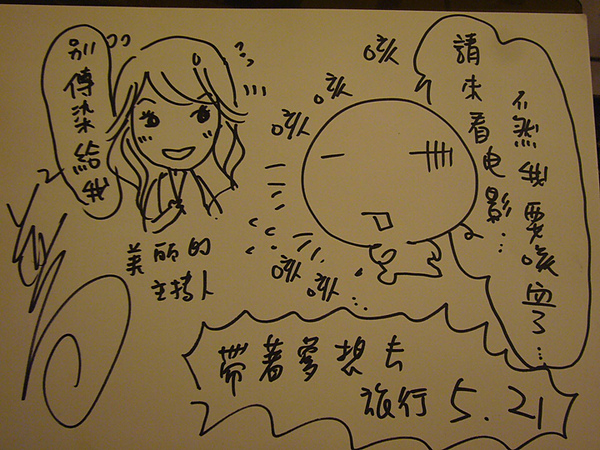 別傳染給我
請來看电影...
不然我要咳血了...
咳
咳
咳
咳
咳...
美丽的
主持人
帶著夢想去
旅行 5.21